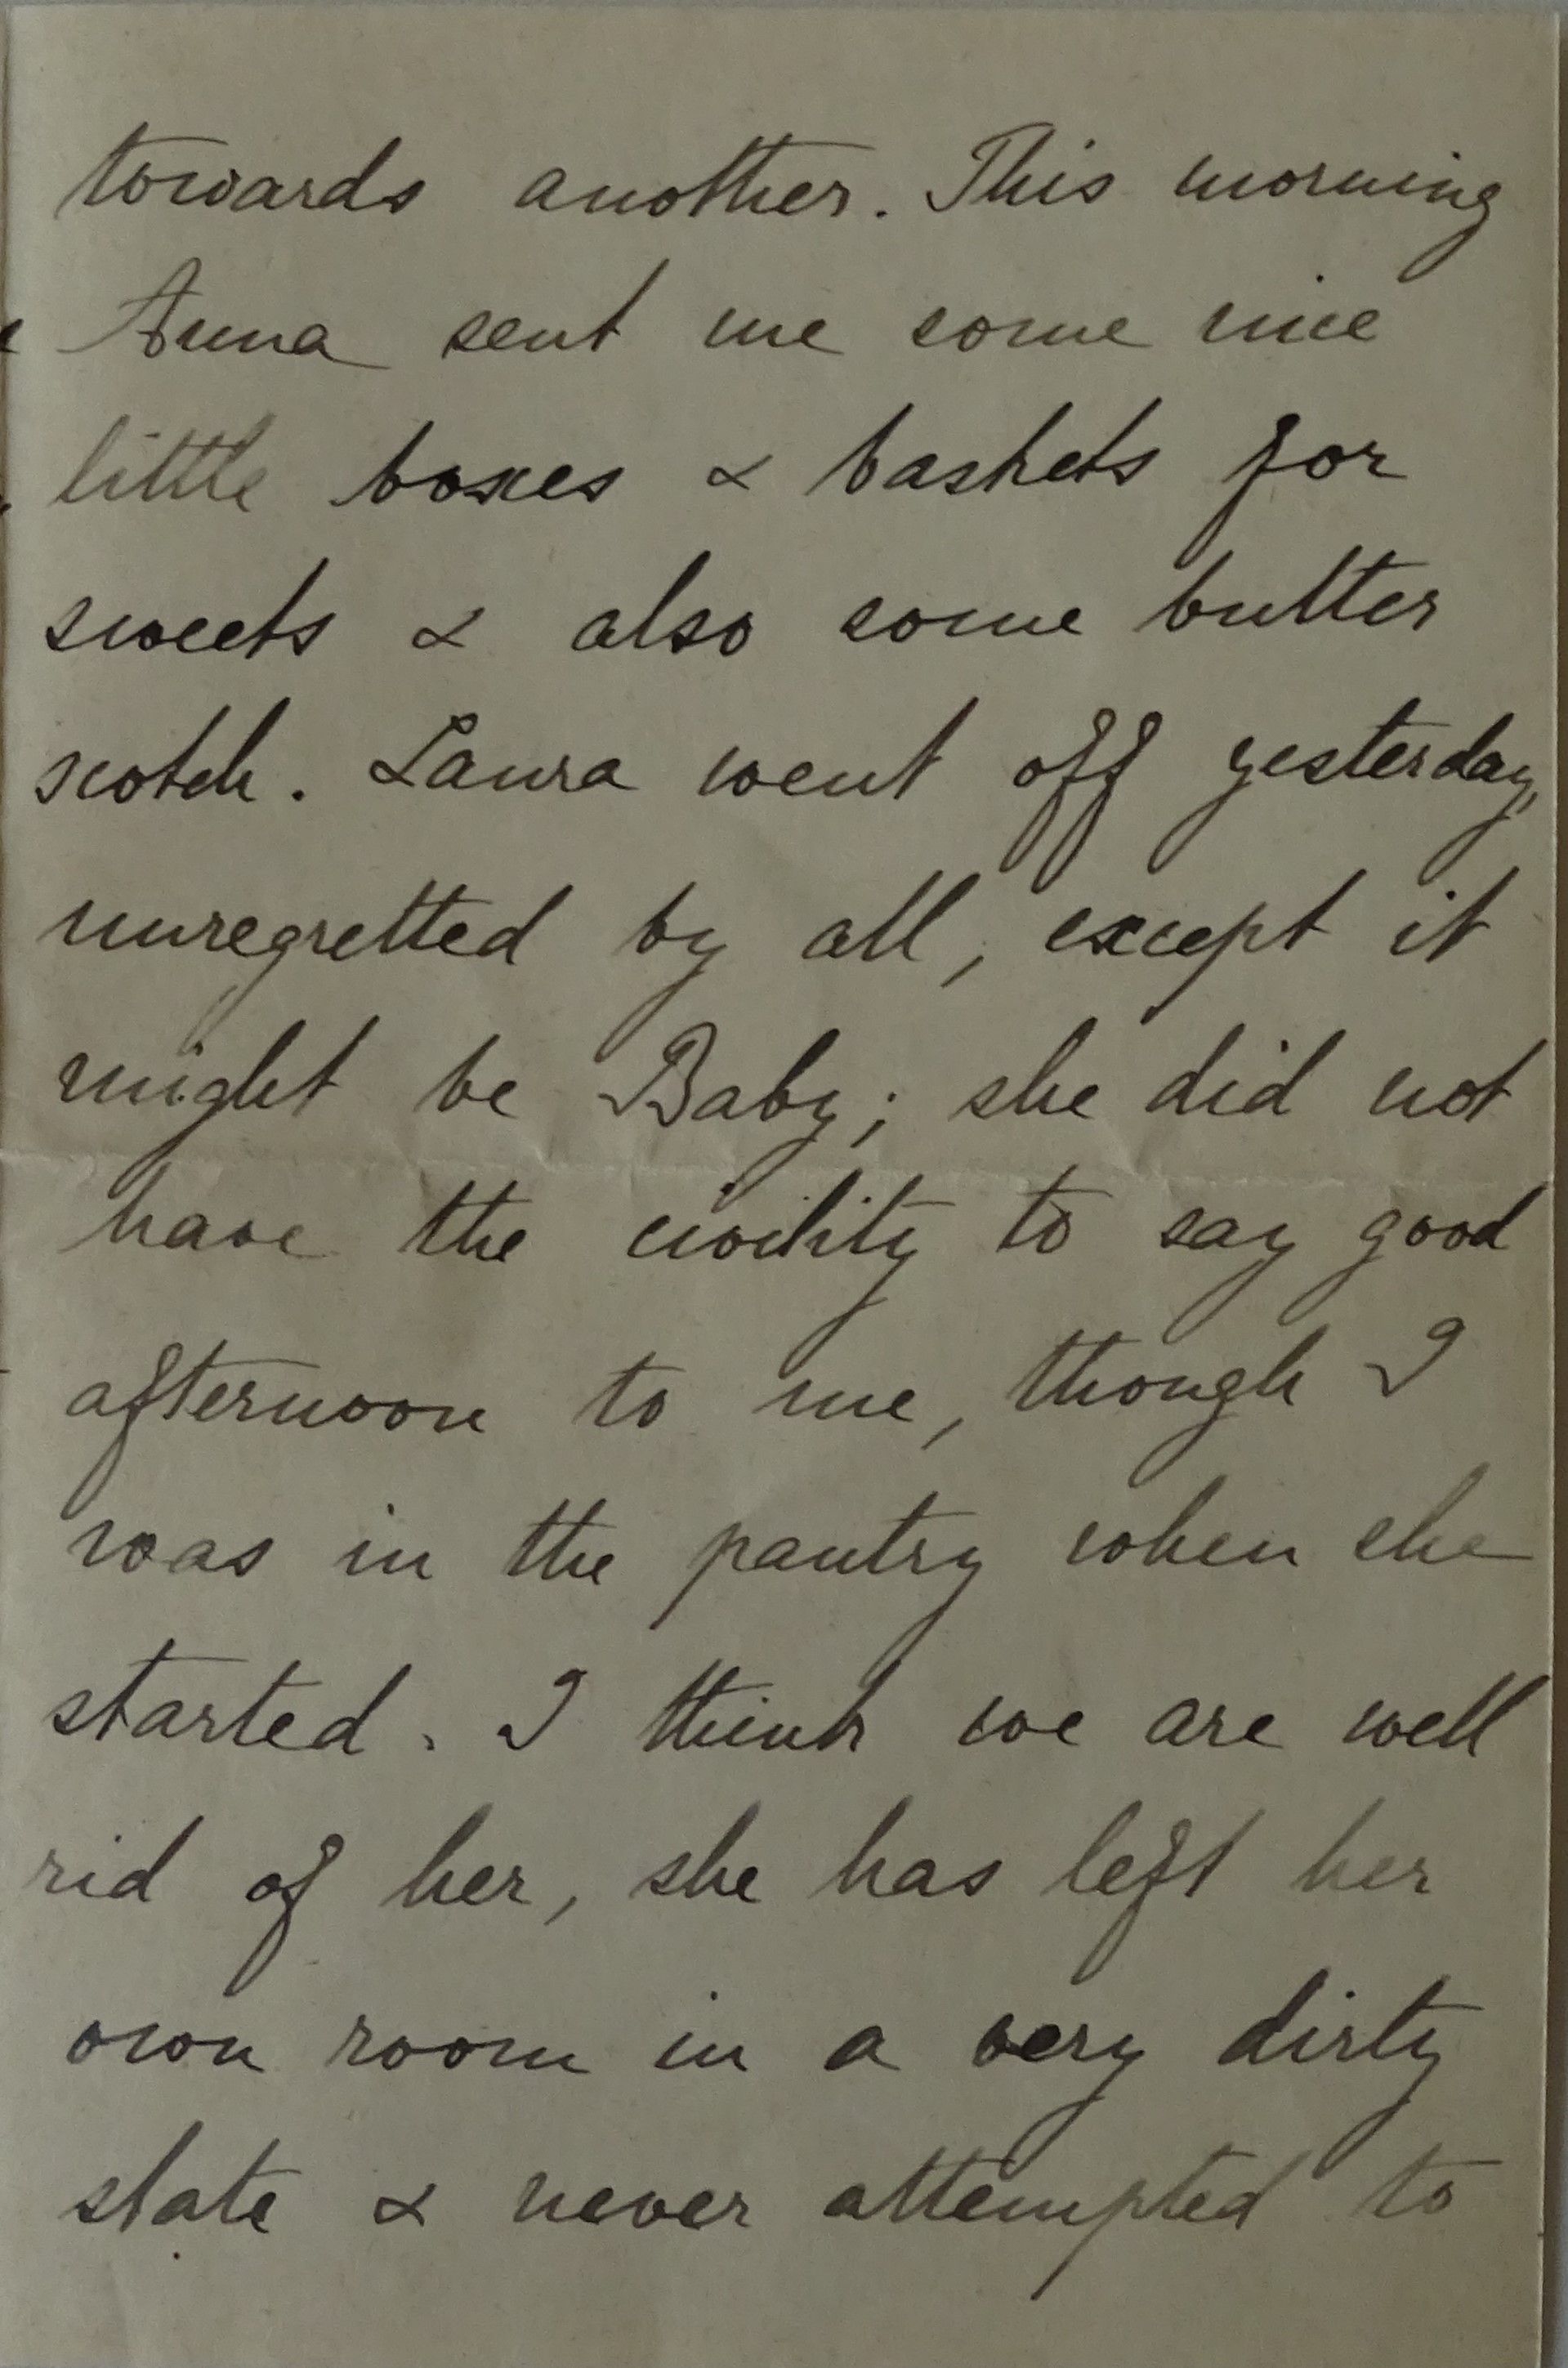 towards another. This morning
Anna sent me some nice
little boxes & baskets for
sweets & also some butter
scotch. Laura went off yesterday,
unregretted by all, except it
might be Baby; she did not
have the civility to say good
afternoon to me, though I
was in the pantry when she
started. I think we are well
rid of her, she has left her
own room in a very dirty
state & never attempted to